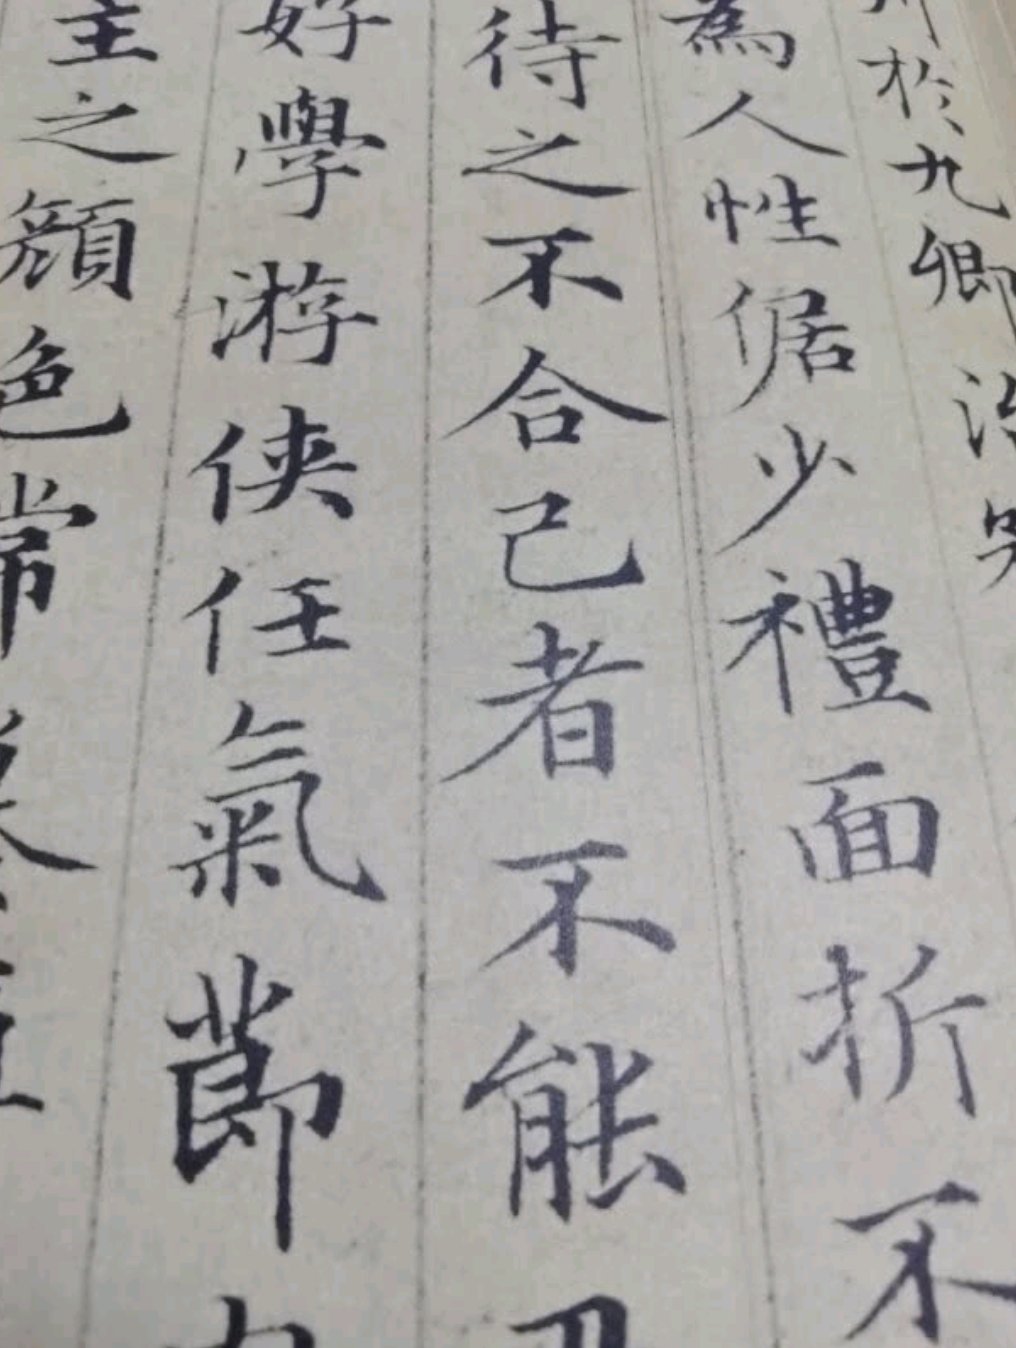 於九卿治
為人性倨少禮面折不
待之不合己者不能
好學游俠任氣節
主之顏色常